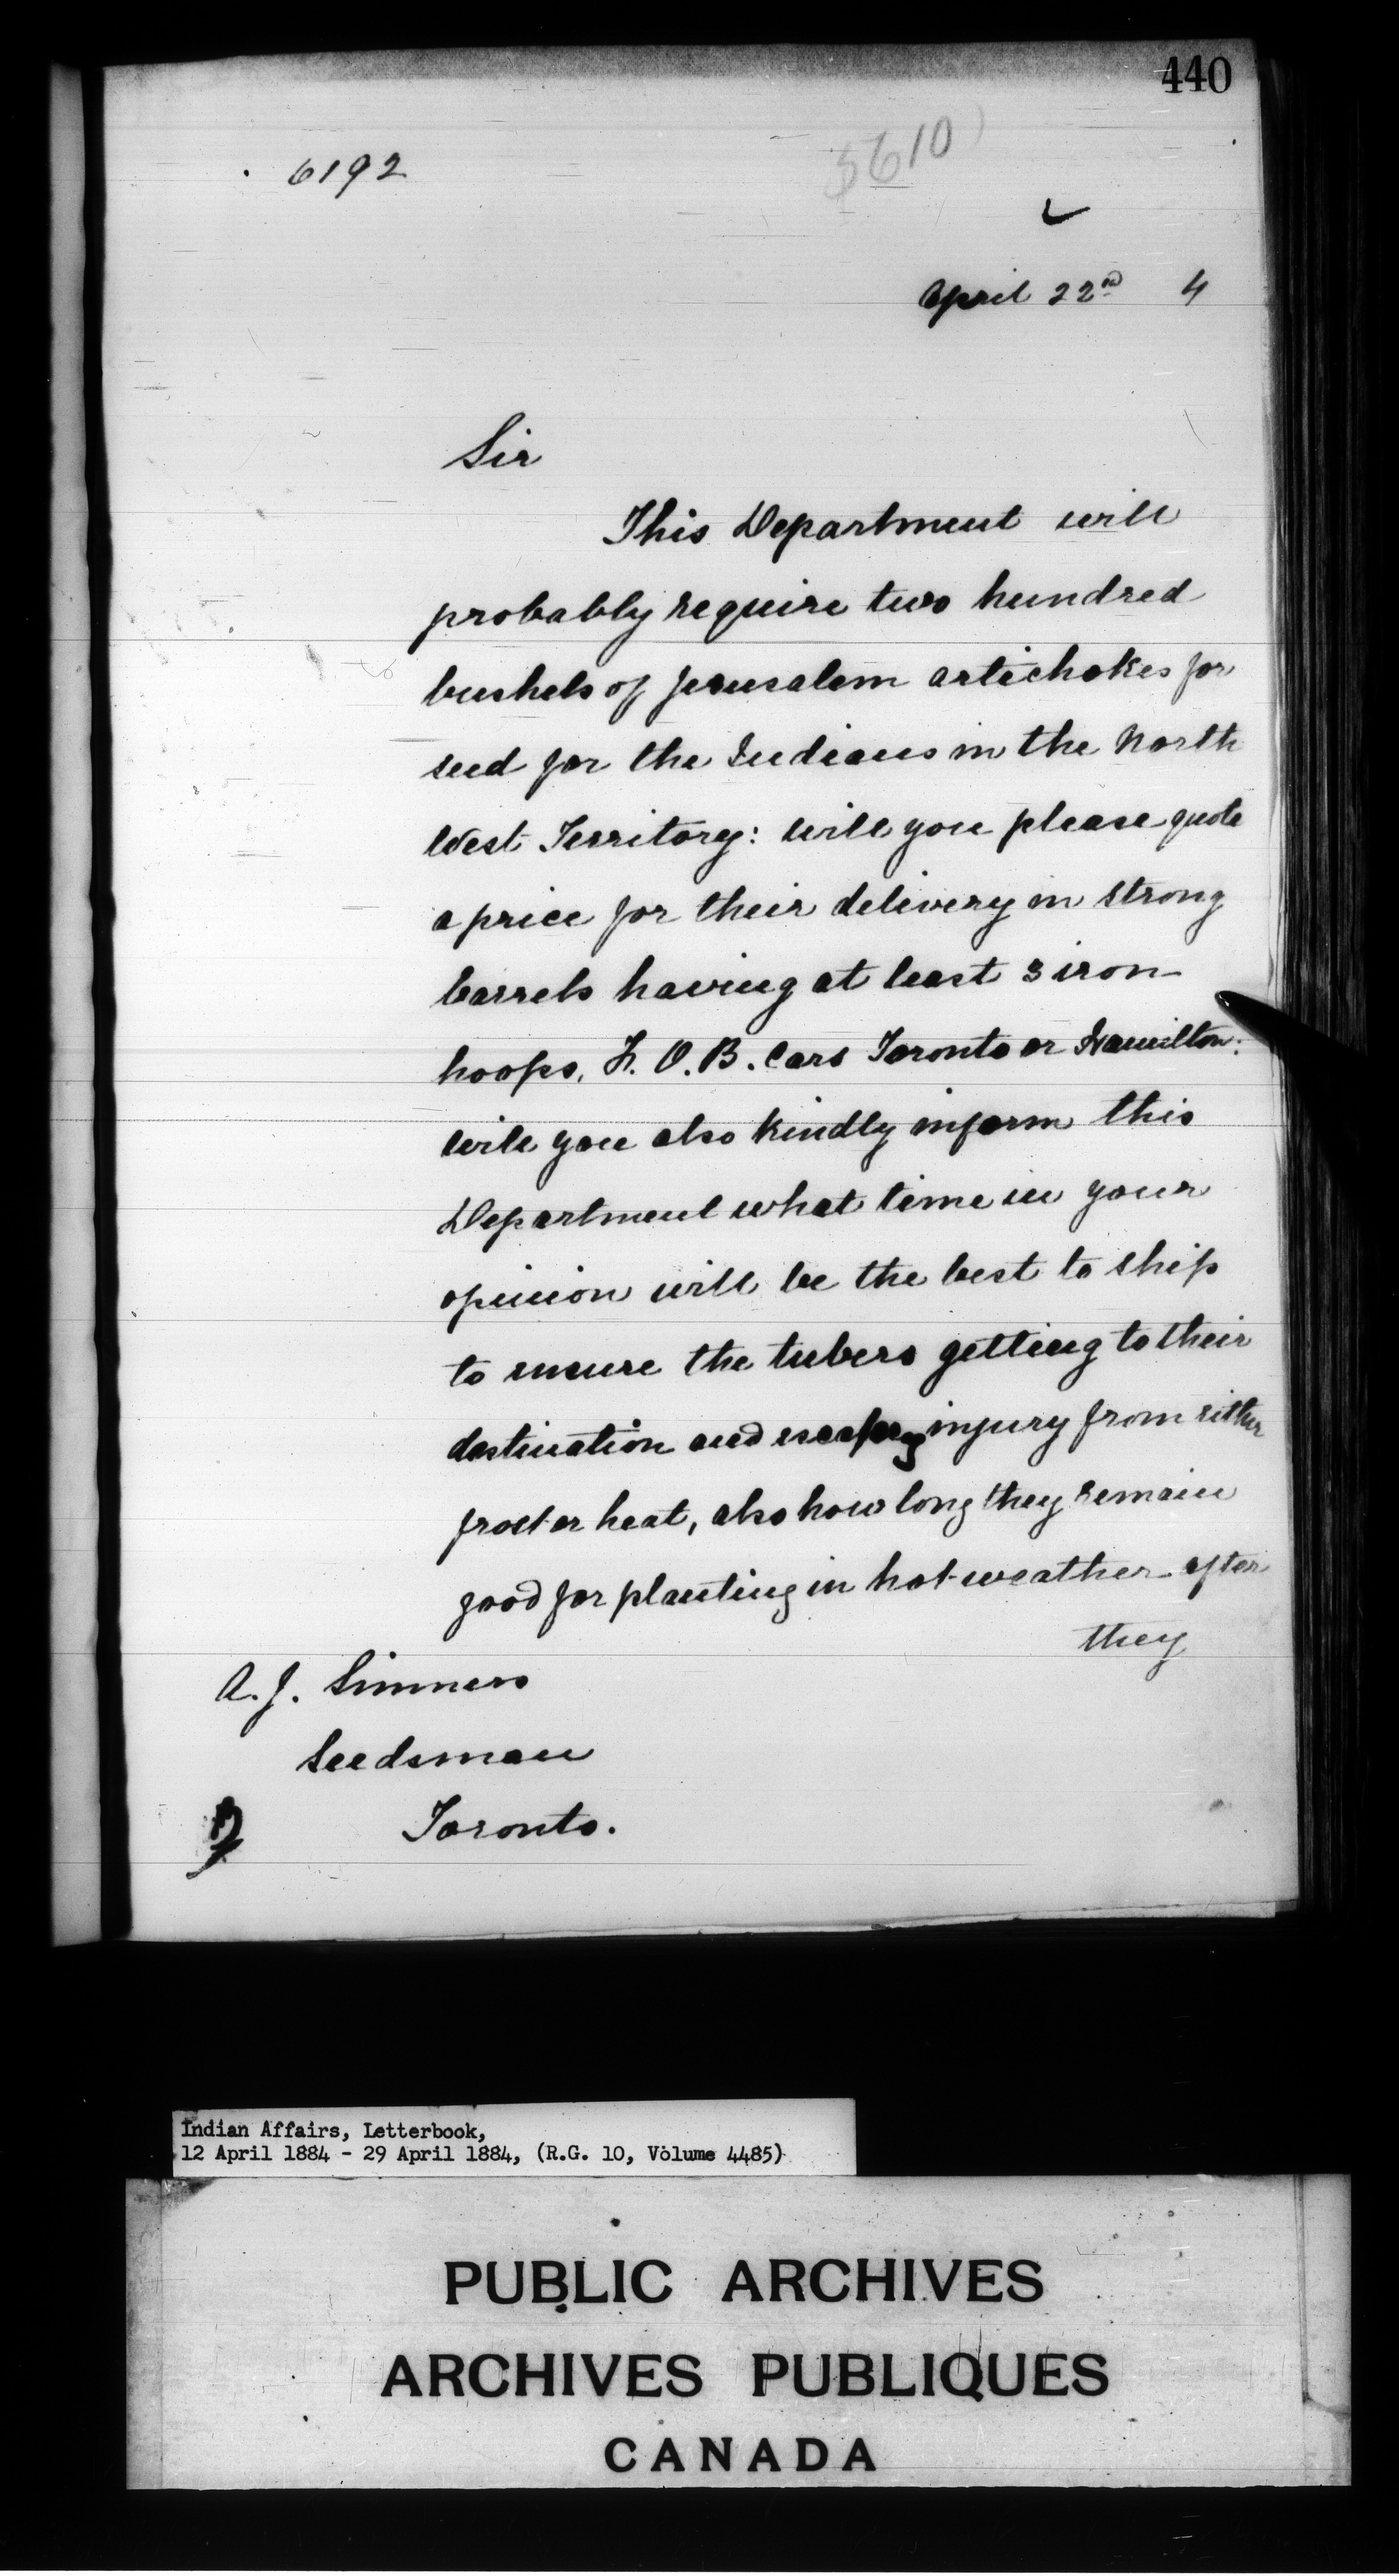 440
6192
5610
April 22nd 4
Sir
This Department will
probably require two hundred
bushels of Jerusalem artichokes for
seed for the Indians in the North
West Territory: will you please quote
a price for their delivery in strong
barrels having at least 3 iron
hoops, F. O. B. Cars Toronto or Hamilton:
will you also kindly inform this
Department what time in your
opinion will be the best to ship
to ensure the tubers getting to their
destination and injury from either
frost or heat, also how long they remain
good for planting in hot weather after
they
A. J. Simmers
Seedsman
Toronto.
Indian Affairs, Letterbook,
12 April 1884 - 29 April 1884, (R.G. 10, Volume 4485)
PUBLIC ARCHIVES
ARCHIVES PUBLIQUES
CANADA